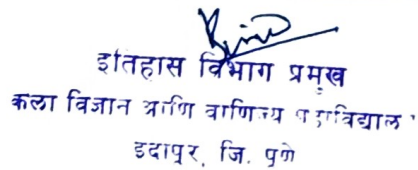 इतिहास विभाग प्रमुख
कला विज्ञान आणि वाणिज्य
इदापूर, जि. पुणे